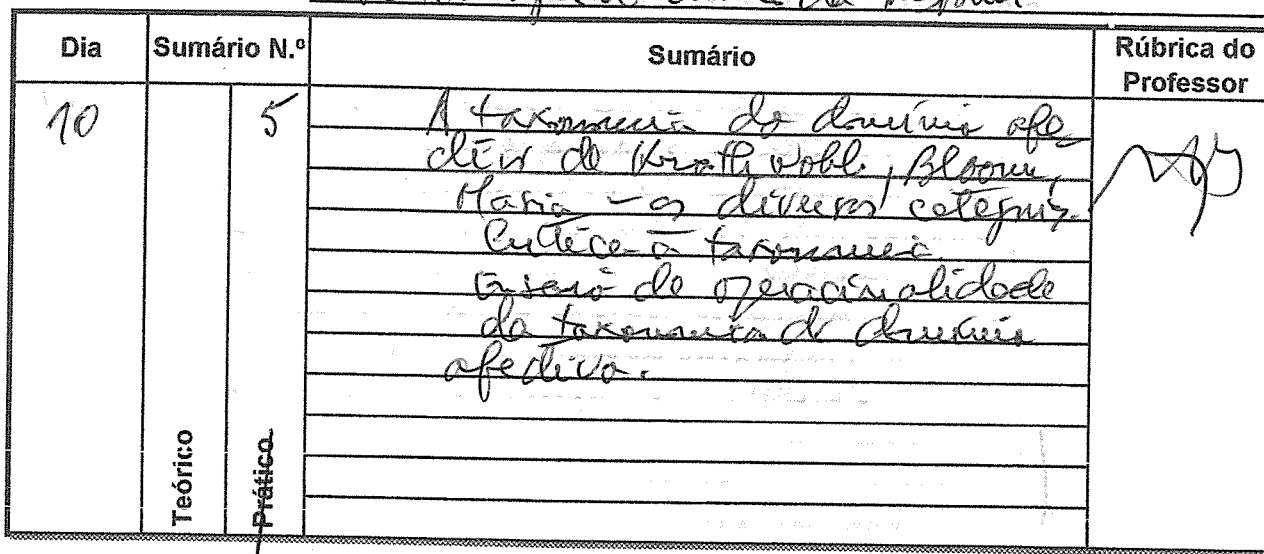 Dia Sumário N.º Sumário Rúbrica do Professor
10 5 A taxonomia do domínio afe
ctivo de Krathwohl, Bloom,
Masia - as diversas categorias.
Crítica à taxonomia.
Ensaio de operacionalidade
da taxonomia do domínio
afectivo.
Teórico
Prático